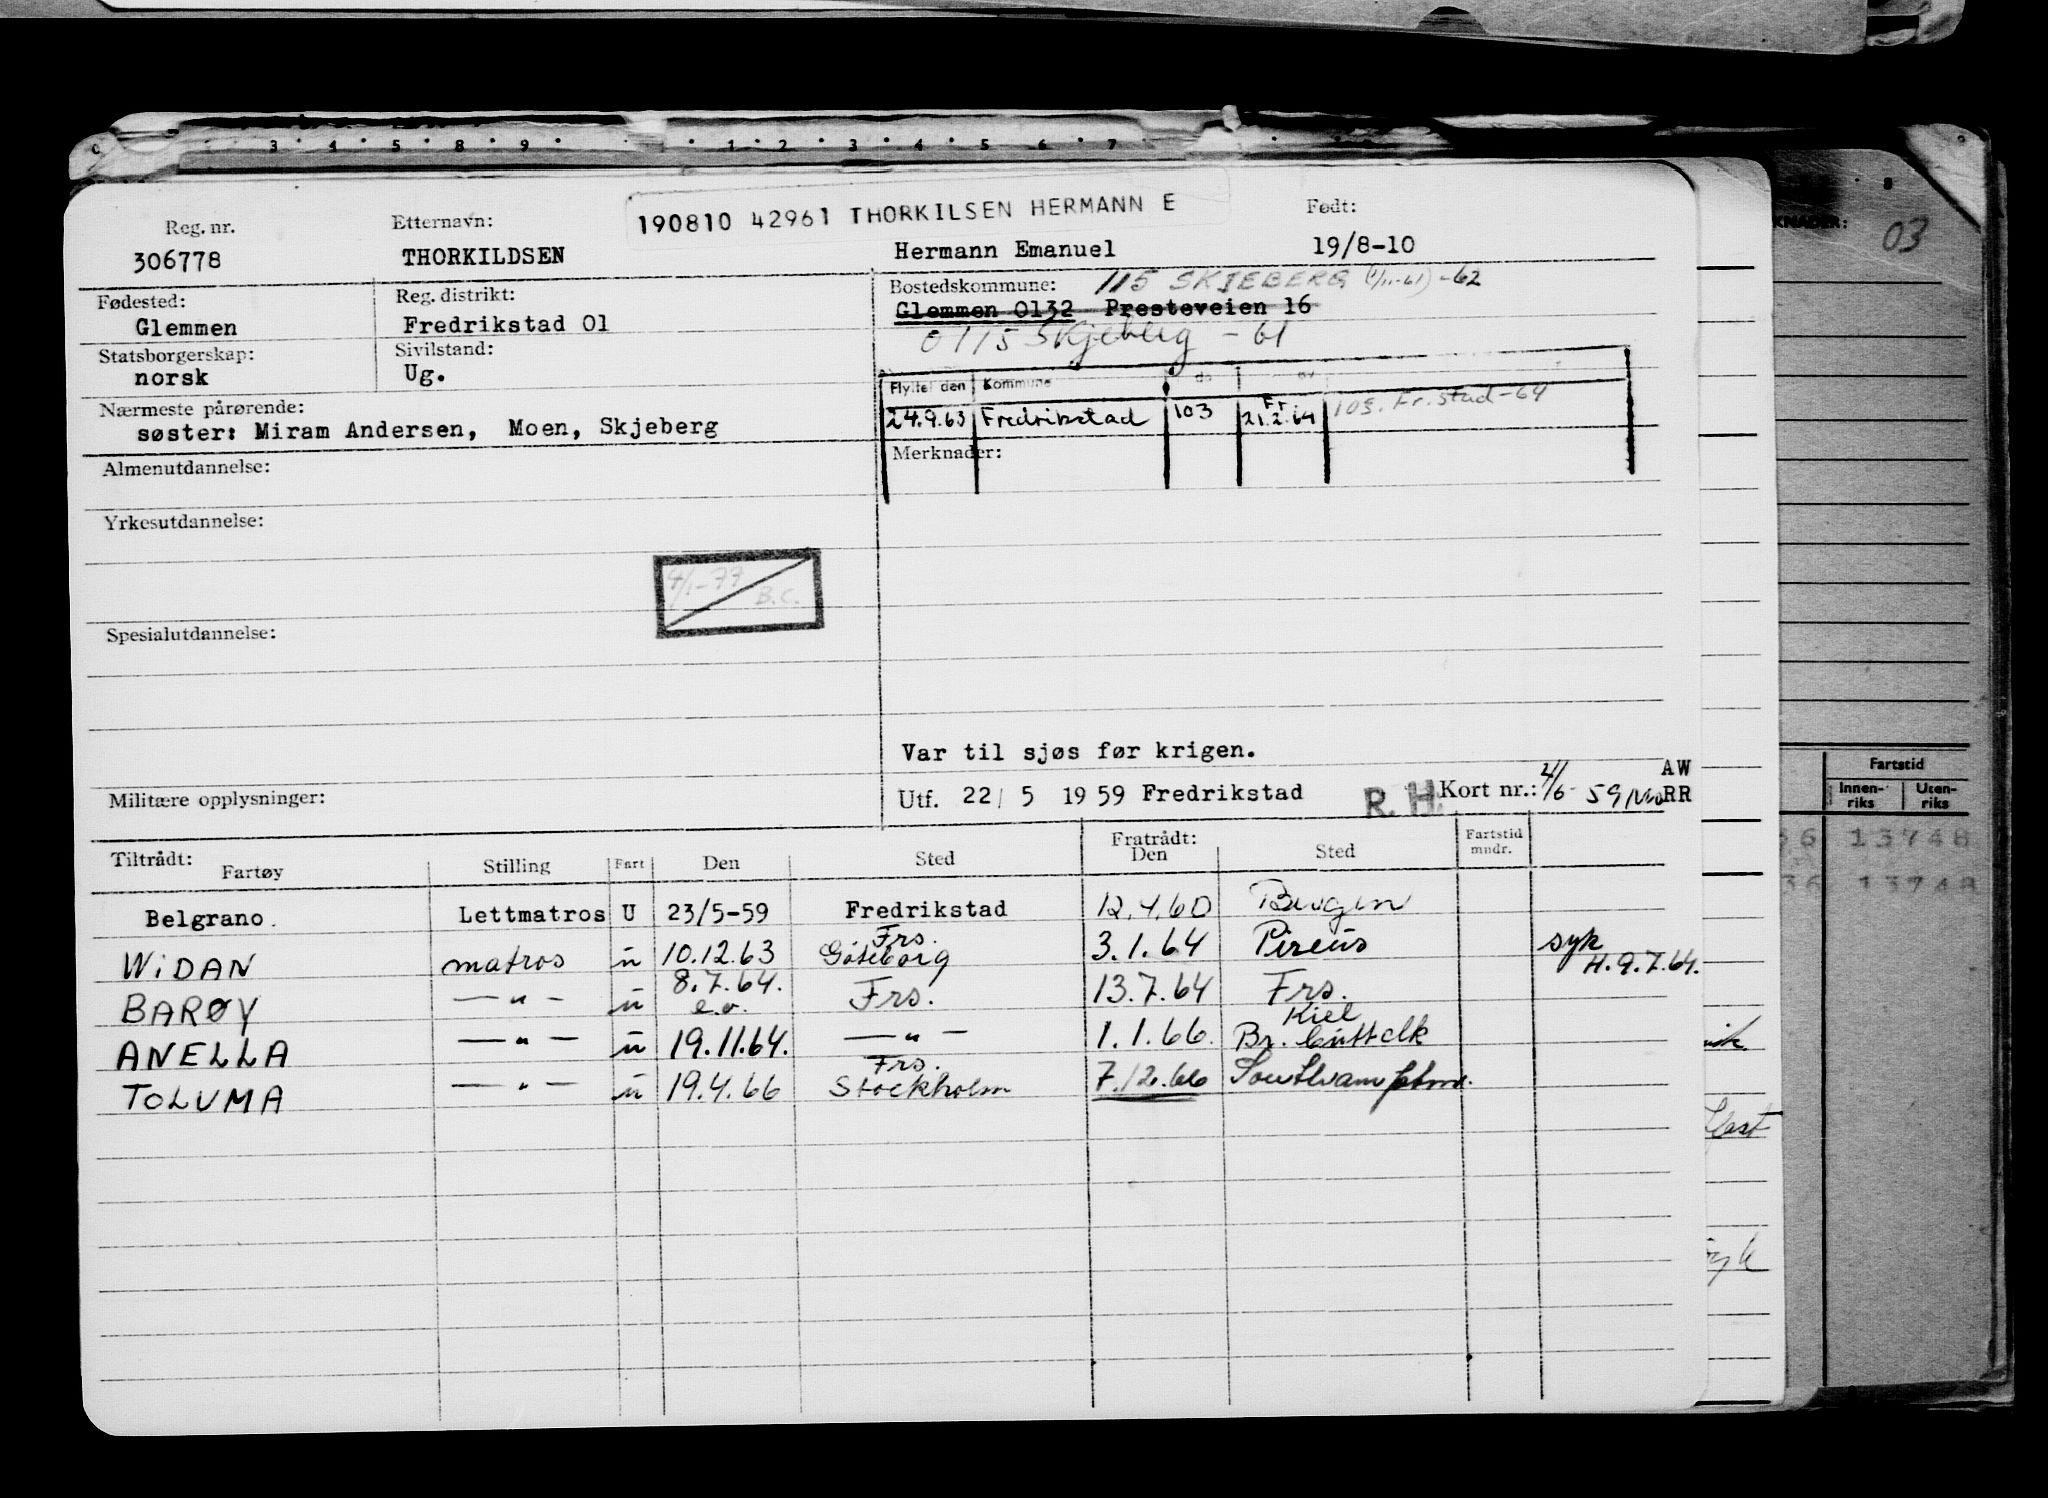 190810 42961 THORKILSEN HERMANN E
Reg. nr. Etternavn: Født:
306778 THORKILDSEN Hermann Emanuel 19/8-10
Fødested: Reg. distrikt: Bostedskommune: 115 SKJEBERG (1/11-61) -62
Glemmen Fredrikstad 01 Glemmen 0132 Presteveien 16
0115 Skjeberg - 61
Statsborgerskap: Sivilstand:
norsk Ug.
Flyttet den Kommune
Nærmeste pårørende: 24.9.63 Fredrikstad 103 Fr. 21.2.64 103. Fr.stad-64
søster: Miram Andersen, Moen, Skjeberg
Almenutdannelse: Merknader:
Yrkesutdannelse:
4/1-77 B.C.
Spesialutdannelse:
Var til sjøs før krigen.
Militære opplysninger: Utf. 22/5 1959 Fredrikstad R.H. Kort nr.: AW
RR
Tiltrådt: Fratrådt: Fartstid
Fartøy Stilling Fart Den Sted Den Sted mndr.
Belgrano. Lettmatros U 23/5-59 Fredrikstad 12.4.60 Bergen
WIDAN matros u 10.12.63 Frs. Göteborg 3.1.64 Pireus syk H.9.7.64.
BARØY —"— u 8.7.64. e.o. Frs. 13.7.64 Frs.
ANELLA —"— u 19.11.64. —"— 1.1.66. Kiel
TOLUMA —"— u 19.4.66 Frs. Stockholm 7.12.66
KNADER: 03
Fartstid
Innen-riks Uten-riks
36 13748
36 13748